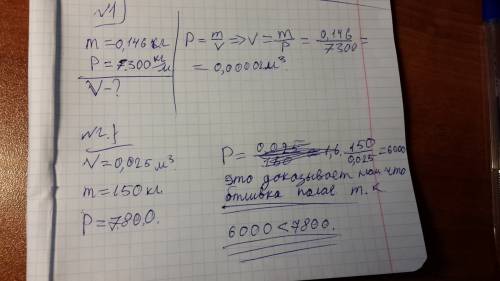 √1)
m = 0,146 кг
P = 7300 кг/м
V - ?
P = m/V => V = m/P = 0,146/7300 =
= 0,00002 м³
√2.)
V = 0,025 м³
m = 150 кг
P = 7800.
P = 150/0,025 = 6000
это доказывает нам что
отливка полая т.к
6000 < 7800.